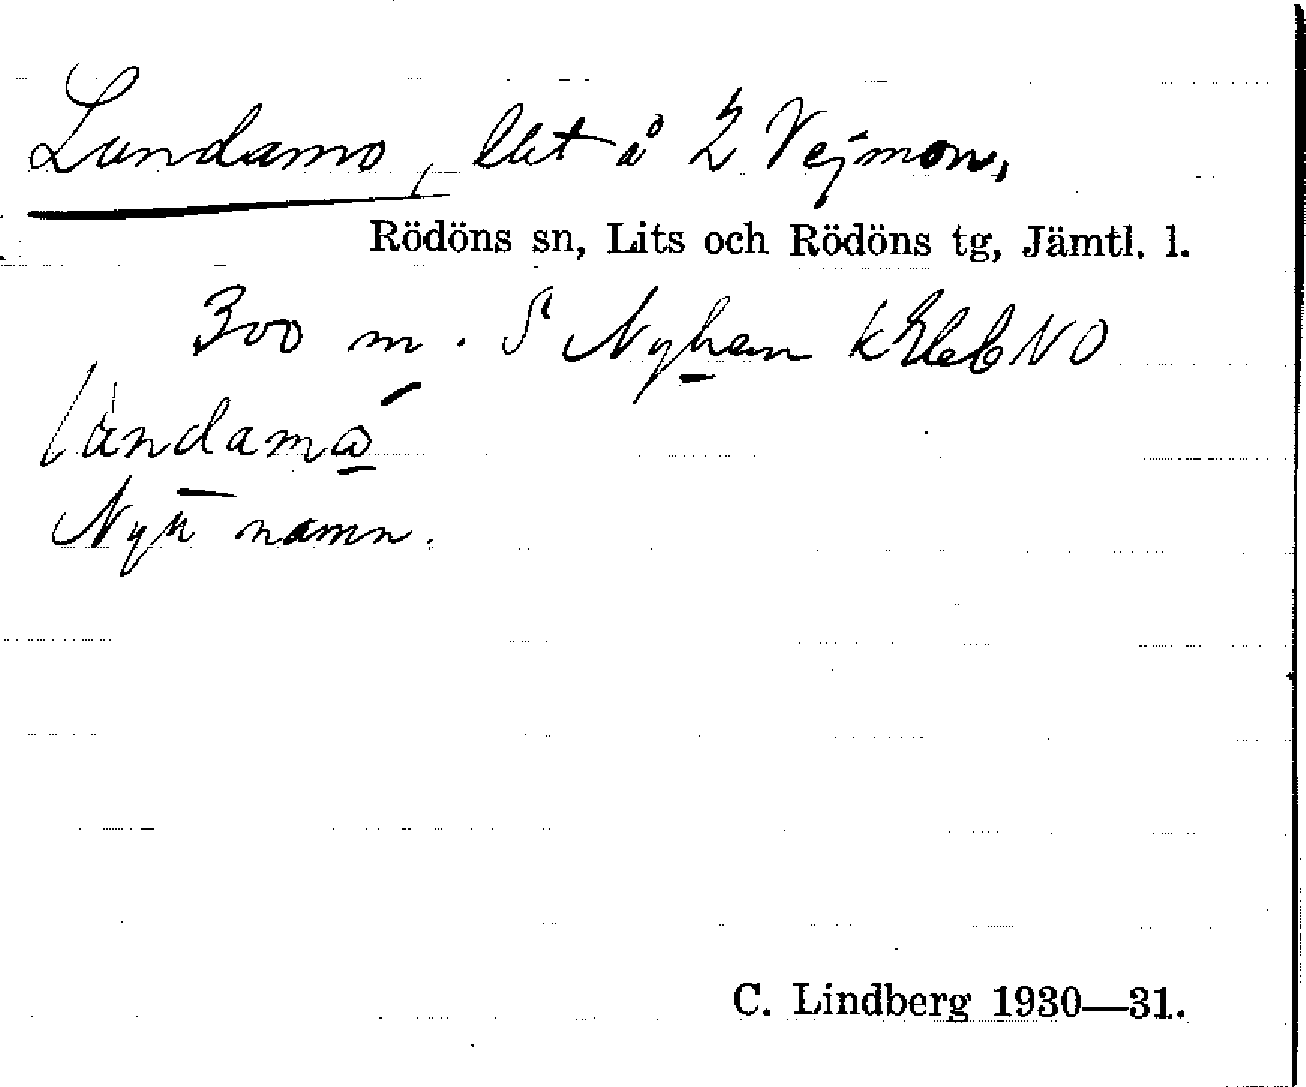 Lundamo, lht å 2 Vejmon,
Rödöns sn, Lits och Rödöns tg, Jämtl. l.
300 m. S Nyhem k NO
Nytt namn.
C. Lindberg 1930—31.